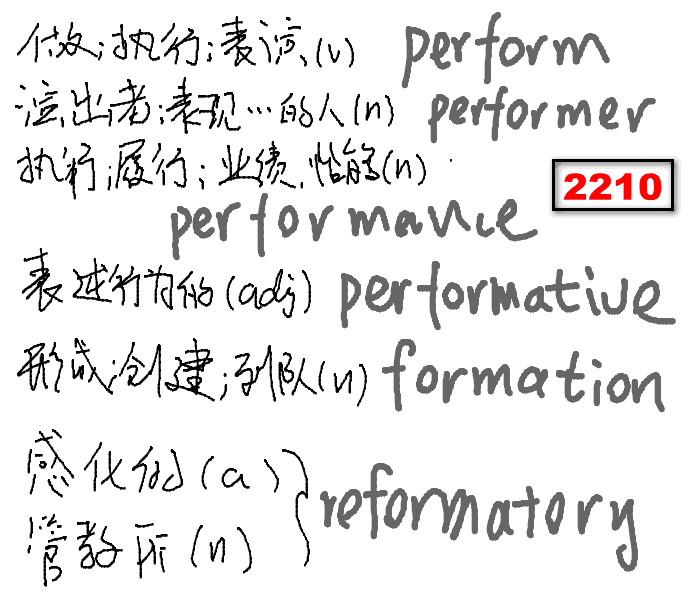 做;执行;表演(v) perform
演出者;表现…的人(n) performer
执行;履行;业绩,性能(n)
2210
performance
表述行为的(adj) performative
形成;创建;列队(n) formation
感化的(a)
reformatory
管教所(n)